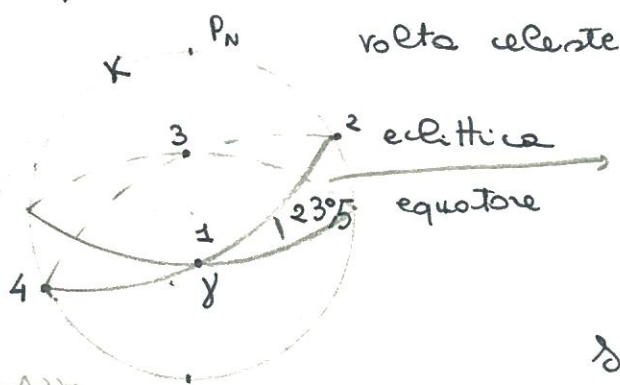 P_N volta celeste
K
3
2 eclittica
23°,5 equatore
1
4
γ